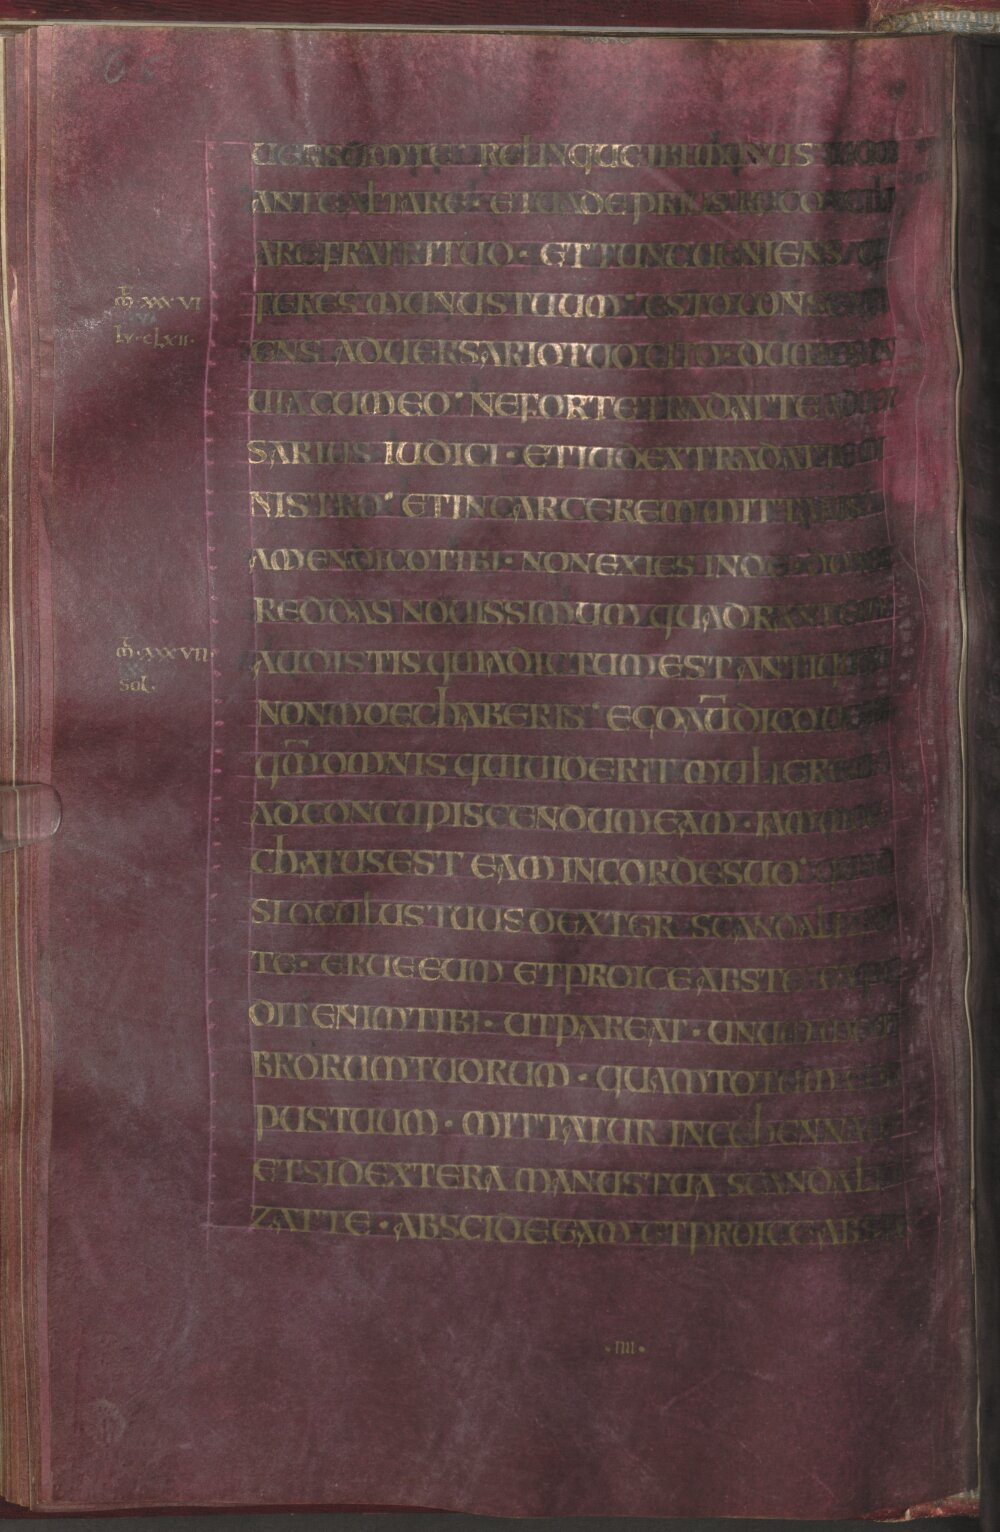 UERSUM TE · RELINQUE IBI MUNUS
ANTE ALTARE · ET UADE PRIUS RECONCILI
ARE FRATRI TUO · ET TUNC UENIENS OF
FERES MUNUS TUUM · ESTO CONSENTI
m̄ xxxvi
lv · clxii ·
ENS ADUERSARIO TUO CITO · DUM ES IN
UIA CUM EO · NE FORTE TRADAT TE ADUER
SARIUS IUDICI · ET IUDEX TRADAT TE MI
NISTRO · ET IN CARCEREM MITTARIS
AMEN DICO TIBI · NON EXIES INDE · DONEC
REDDAS NOUISSIMUM QUADRANTEM
m̄ · xxxvii
sol ·
AUDISTIS QUIA DICTUM EST ANTIQUIS
NON MOECHABERIS · EGO AŪ DICO UOBIS
QM̄ OMNIS QUI UIDERIT MULIEREM
AD CONCUPISCENDUM EAM · IAM MOE
CHATUS EST EAM IN CORDE SUO · QUOD
SI OCULUS TUUS DEXTER SCANDALIZAT
TE · ERUE EUM ET PROICE ABS TE · EXPE
DIT ENIM TIBI · UT PAREAT · UNUM MEM
BRORUM TUORUM · QUAM TOTUM COR
PUS TUUM · MITTATUR IN GEHENNAM
ET SI DEXTERA MANUS TUA SCANDALI
ZAT TE · ABSCIDE EAM ET PROICE ABS TE
· IIII ·